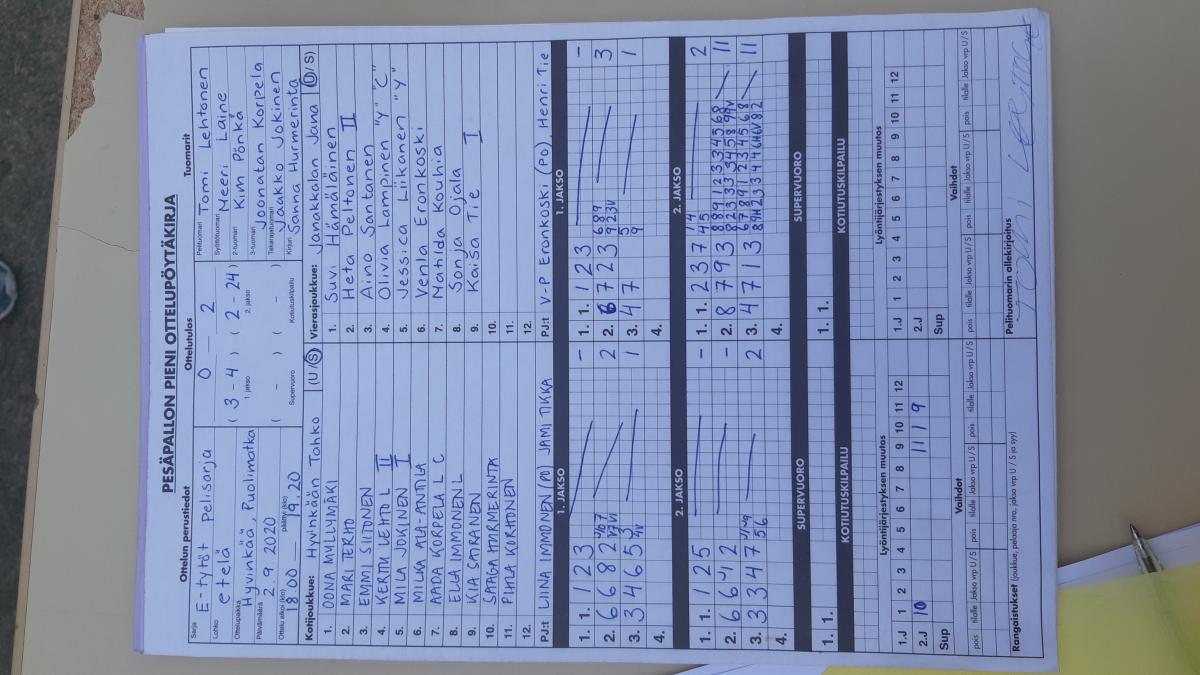 PESÄPALLON PIENI OTTELUPÖYTÄKIRJA
Ottelun perustiedot
Sarja
E-tytöt Pelisarja
Lohko
etelä
Ottelupaikka
Hyvinkää, Puolimatka
Päivämäärä
2.9 2020
Ottelu alkoi (klo) päättyi (klo)
8.00 — 19.20
Ottelutulos
0 — 2
( 3 - 4 ) ( 2 - 24 )
1. jakso 2. jakso
( - ) ( - )
Supervuoro Kotiutuskilpailu
Tuomarit
Pelituomari Tomi Lehtonen
Syöttötuomari Meeri Laine
2-tuomari Kim Pönkä
3-tuomari Joonatan Korpela
Takarajatuomari Jaakko Jokinen
Kirjuri Sanna Hurmerinta
Kotijoukkue: Hyvinkään Tahko (U/S)
1. OONA MYLLYMÄKI
2. MARI TERHO
3. EMMI SIITONEN
4. KERTTU LEHTO L II
5. MILA JOKINEN I
6. MILKA ALA-ANTILA
7. AADA KORPELA L C
8. ELLA IMMONEN L
9. KIIA SATRANEN
10. SATAGA HURMERINTA
11. PIHLA KORHONEN
12.
PJ:t LIINA IMMONEN (PO) JAMI TIKKA
Vierasjoukkue: Janakkalan Jana (U/S)
1. Suvi Hämäläinen
2. Heta Peltonen II
3. Aino Santanen
4. Olivia Lampinen "Y" "C"
5. Jessica Liikanen "Y"
6. Venla Eronkoski
7. Matilda Kouhia
8. Sonja Ojala
9. Kaisa Tie I
10.
11.
12.
PJ:t V-P Eronkoski (PO), Henri Tie
1. JAKSO
1. 1. 1 2 3 -
2. 6 6 8 2 2
3. 3 4 6 5 3 1
4.
1. JAKSO
1. 1. 1 2 3 -
2. 6 7 2 3 3
3. 4 7 1
4.
2. JAKSO
1. 1. 1 2 5 -
2. 6 6 4 2 -
3. 3 3 4 7 2
4.
2. JAKSO
1. 1. 2 3 7 2
2. 8 7 9 3 11
3. 4 7 1 3 11
4.
SUPERVUORO
1. 1.
SUPERVUORO
1. 1.
KOTIUTUSKILPAILU
KOTIUTUSKILPAILU
Lyöntijärjestyksen muutos
1 2 3 4 5 6 7 8 9 10 11 12
1.J
2.J 10 11 1 9
Sup
Lyöntijärjestyksen muutos
1 2 3 4 5 6 7 8 9 10 11 12
1.J
2.J
Sup
Vaihdot
pois tilalle Jakso vrp U/S pois tilalle Jakso vrp U/S pois tilalle Jakso vrp U/S
Vaihdot
pois tilalle Jakso vrp U/S pois tilalle Jakso vrp U/S pois tilalle Jakso vrp U/S
Rangaistukset (joukkue, pelaaja nro, jakso vrp U / S ja syy)
Pelituomarin allekirjoitus